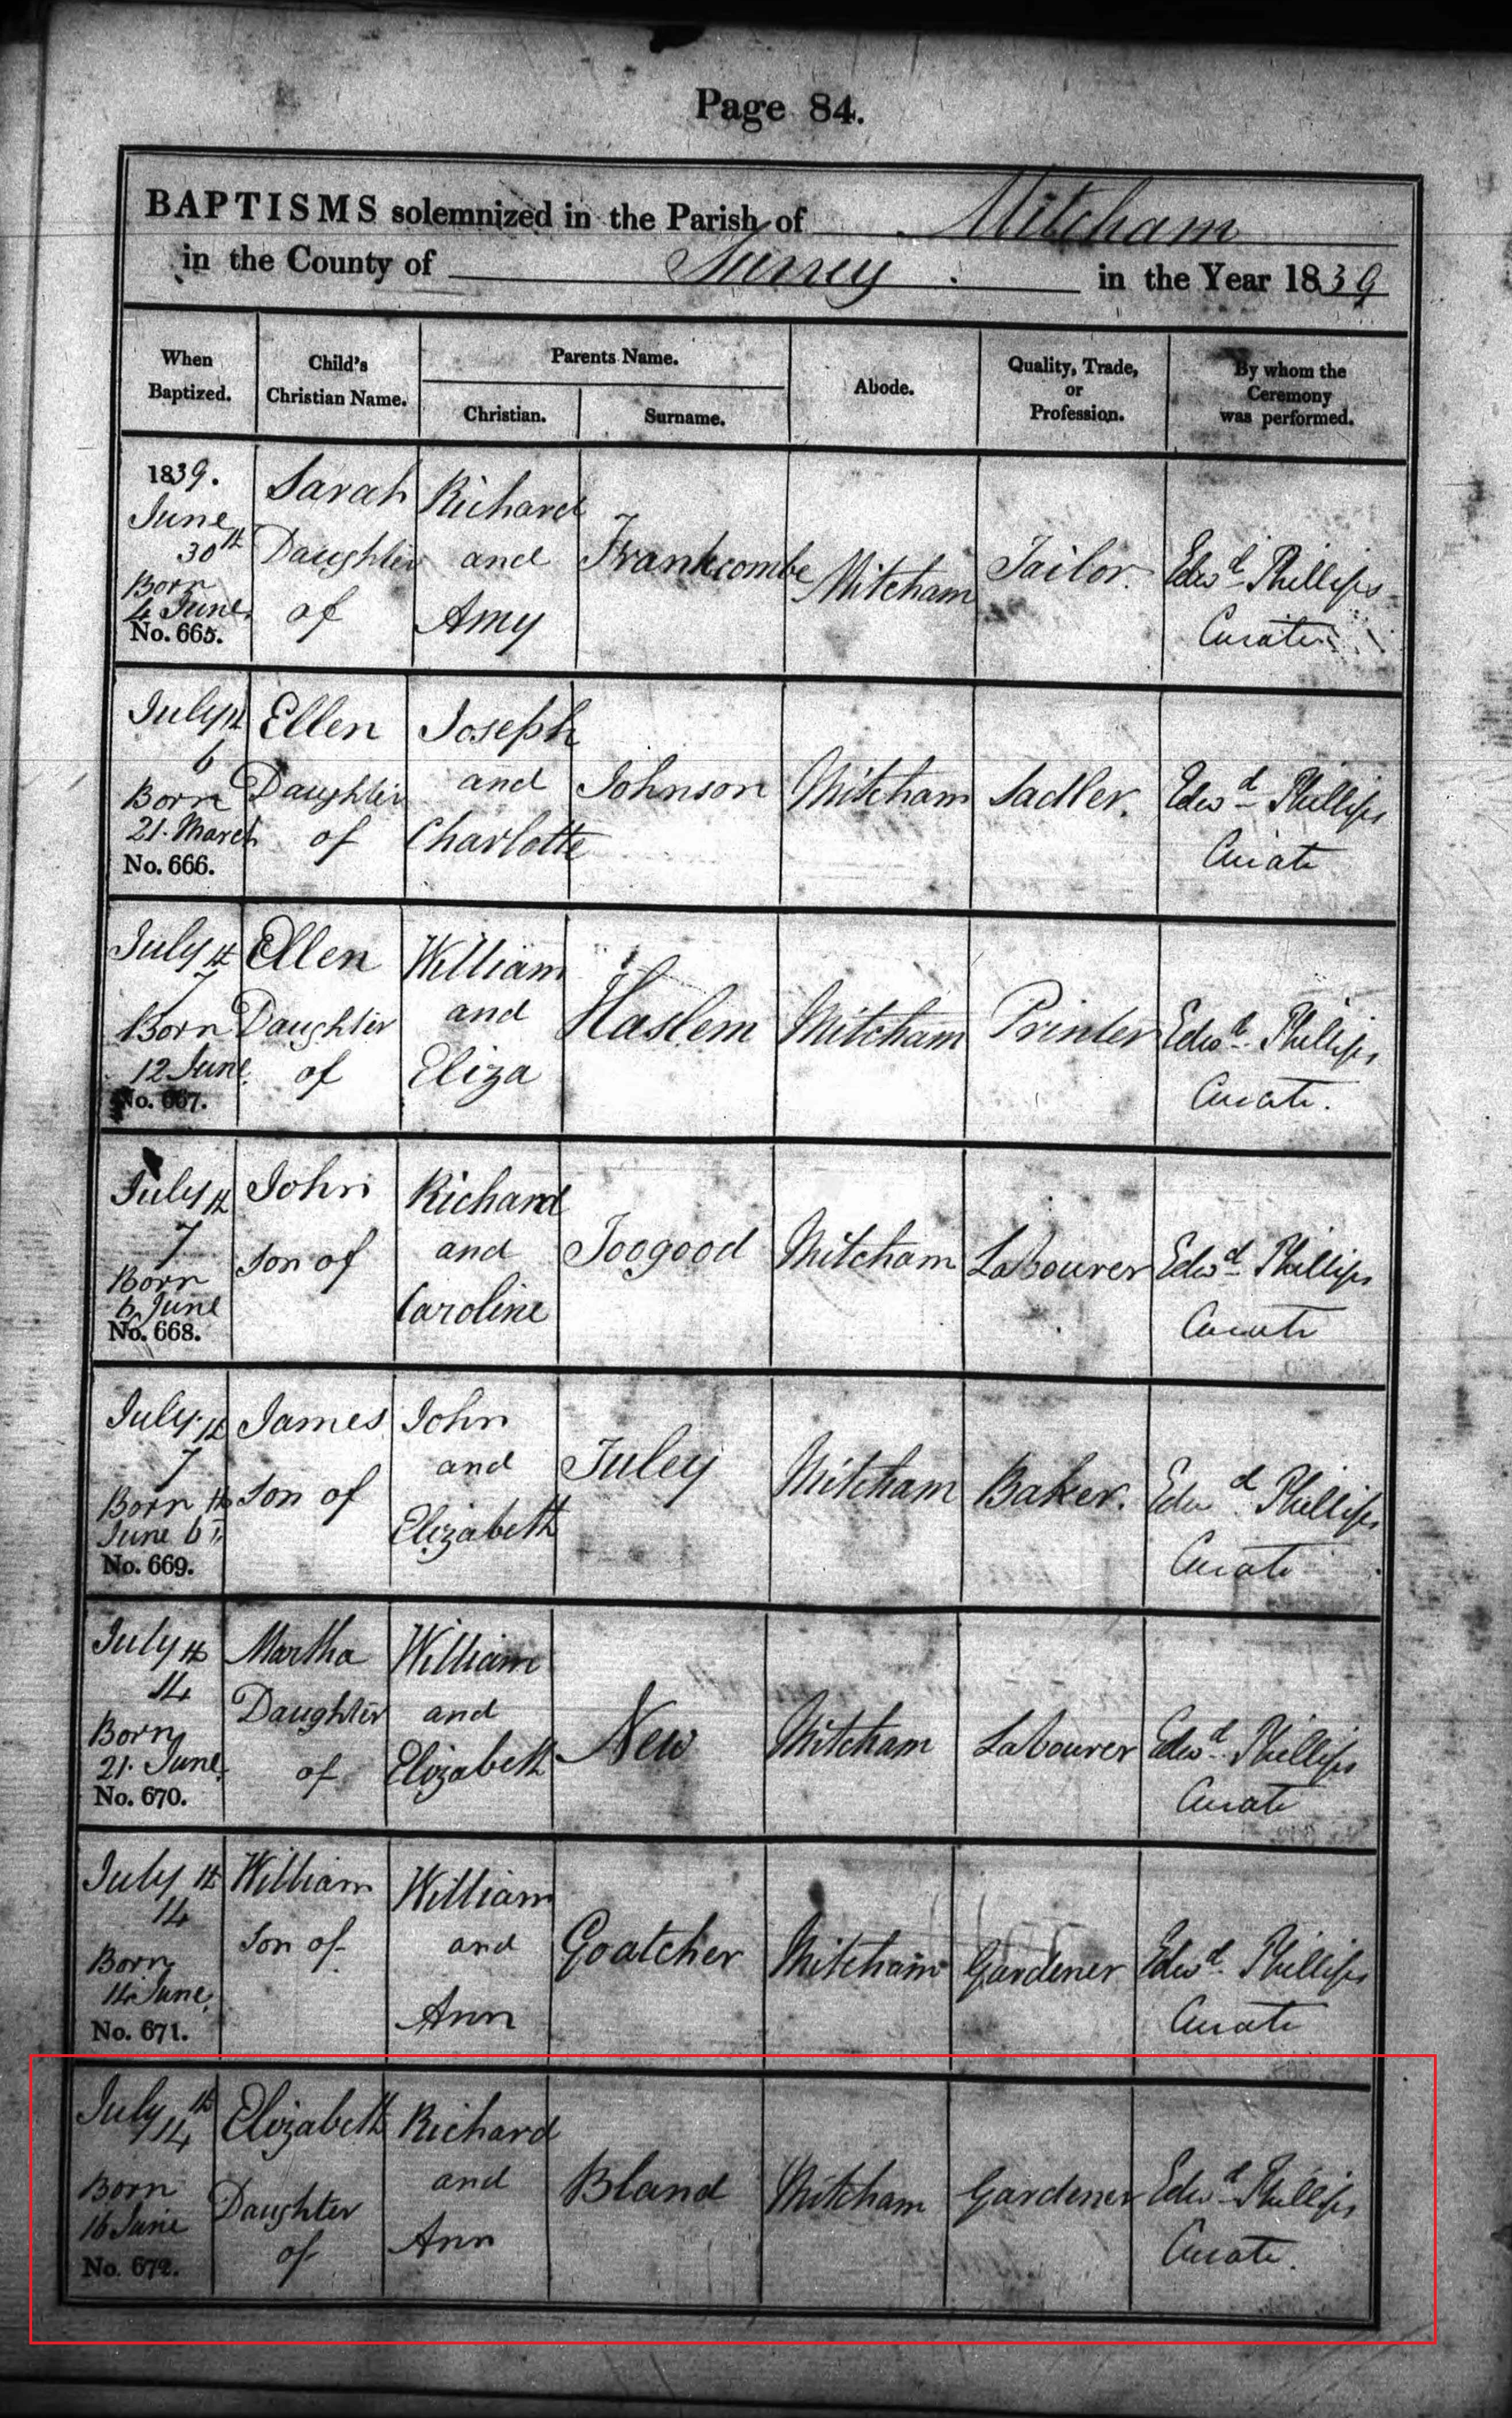 Page 84.
BAPTISMS solemnized in the Parish of Mitcham
in the County of Surrey in the Year 1839
When Baptized.
Child's Christian Name.
Parents Name.
Christian.
Surname.
Abode.
Quality, Trade, or Profession.
By whom the Ceremony was performed.
1839.
June
30th
Born
4 June
No. 665.
Sarah
Daughter
of
Richard
and
Amy
Frankcombe
Mitcham
Tailor.
Edwd Phillips
Curate
July th
6
Born
21. March
No. 666.
Ellen
Daughter
of
Joseph
and
Charlotte
Johnson
Mitcham
Sadler.
Edwd Phillips
Curate
July th
7
Born
12 June
No. 667.
Ellen
Daughter
of
William
and
Eliza
Haslem
Mitcham
Printer
Edwd Phillips
Curate.
July th
7
Born
6 June
No. 668.
John
Son of
Richard
and
Caroline
Toogood
Mitcham
Labourer
Edwd Phillips
Curate
July th
7
Born th
June 6
No. 669.
James
Son of
John
and
Elizabeth
Tuley
Mitcham
Baker.
Edwd Phillips
Curate
July th
14
Born
21. June
No. 670.
Martha
Daughter
of
William
and
Elizabeth
New
Mitcham
Labourer
Edwd Phillips
Curate
July th
14
Born
14 June
No. 671.
William
Son of
William
and
Ann
Goatcher
Mitcham
Gardener
Edwd Phillips
Curate
July th
14
Born
16 June
No. 672.
Elizabeth
Daughter
of
Richard
and
Ann
Bland
Mitcham
Gardener
Edwd Phillips
Curate.